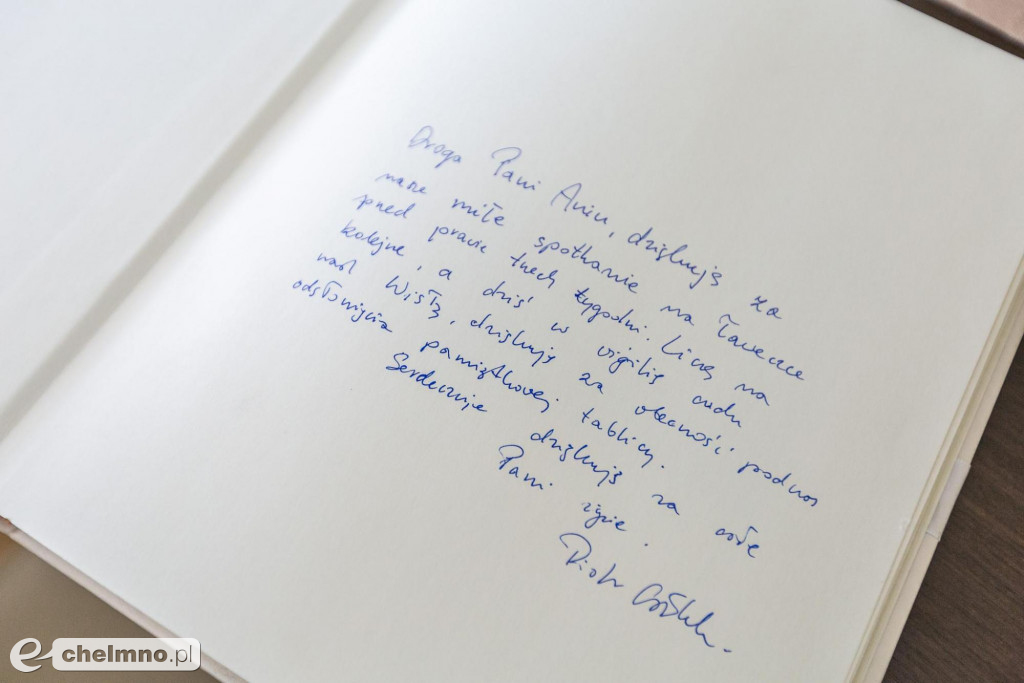 Droga Pani Aniu, dziękuję za
nasze miłe spotkanie na ławeczce
przed prawie trzech tygodni. Liczę na
kolejne, a dziś w wigilię cudu
nad Wisłą, dziękuję za obecność podczas
odsłonięcia pamiątkowej tablicy.
Serdecznie dziękuję za całe
Pani życie.
Piotr
echelmno.pl